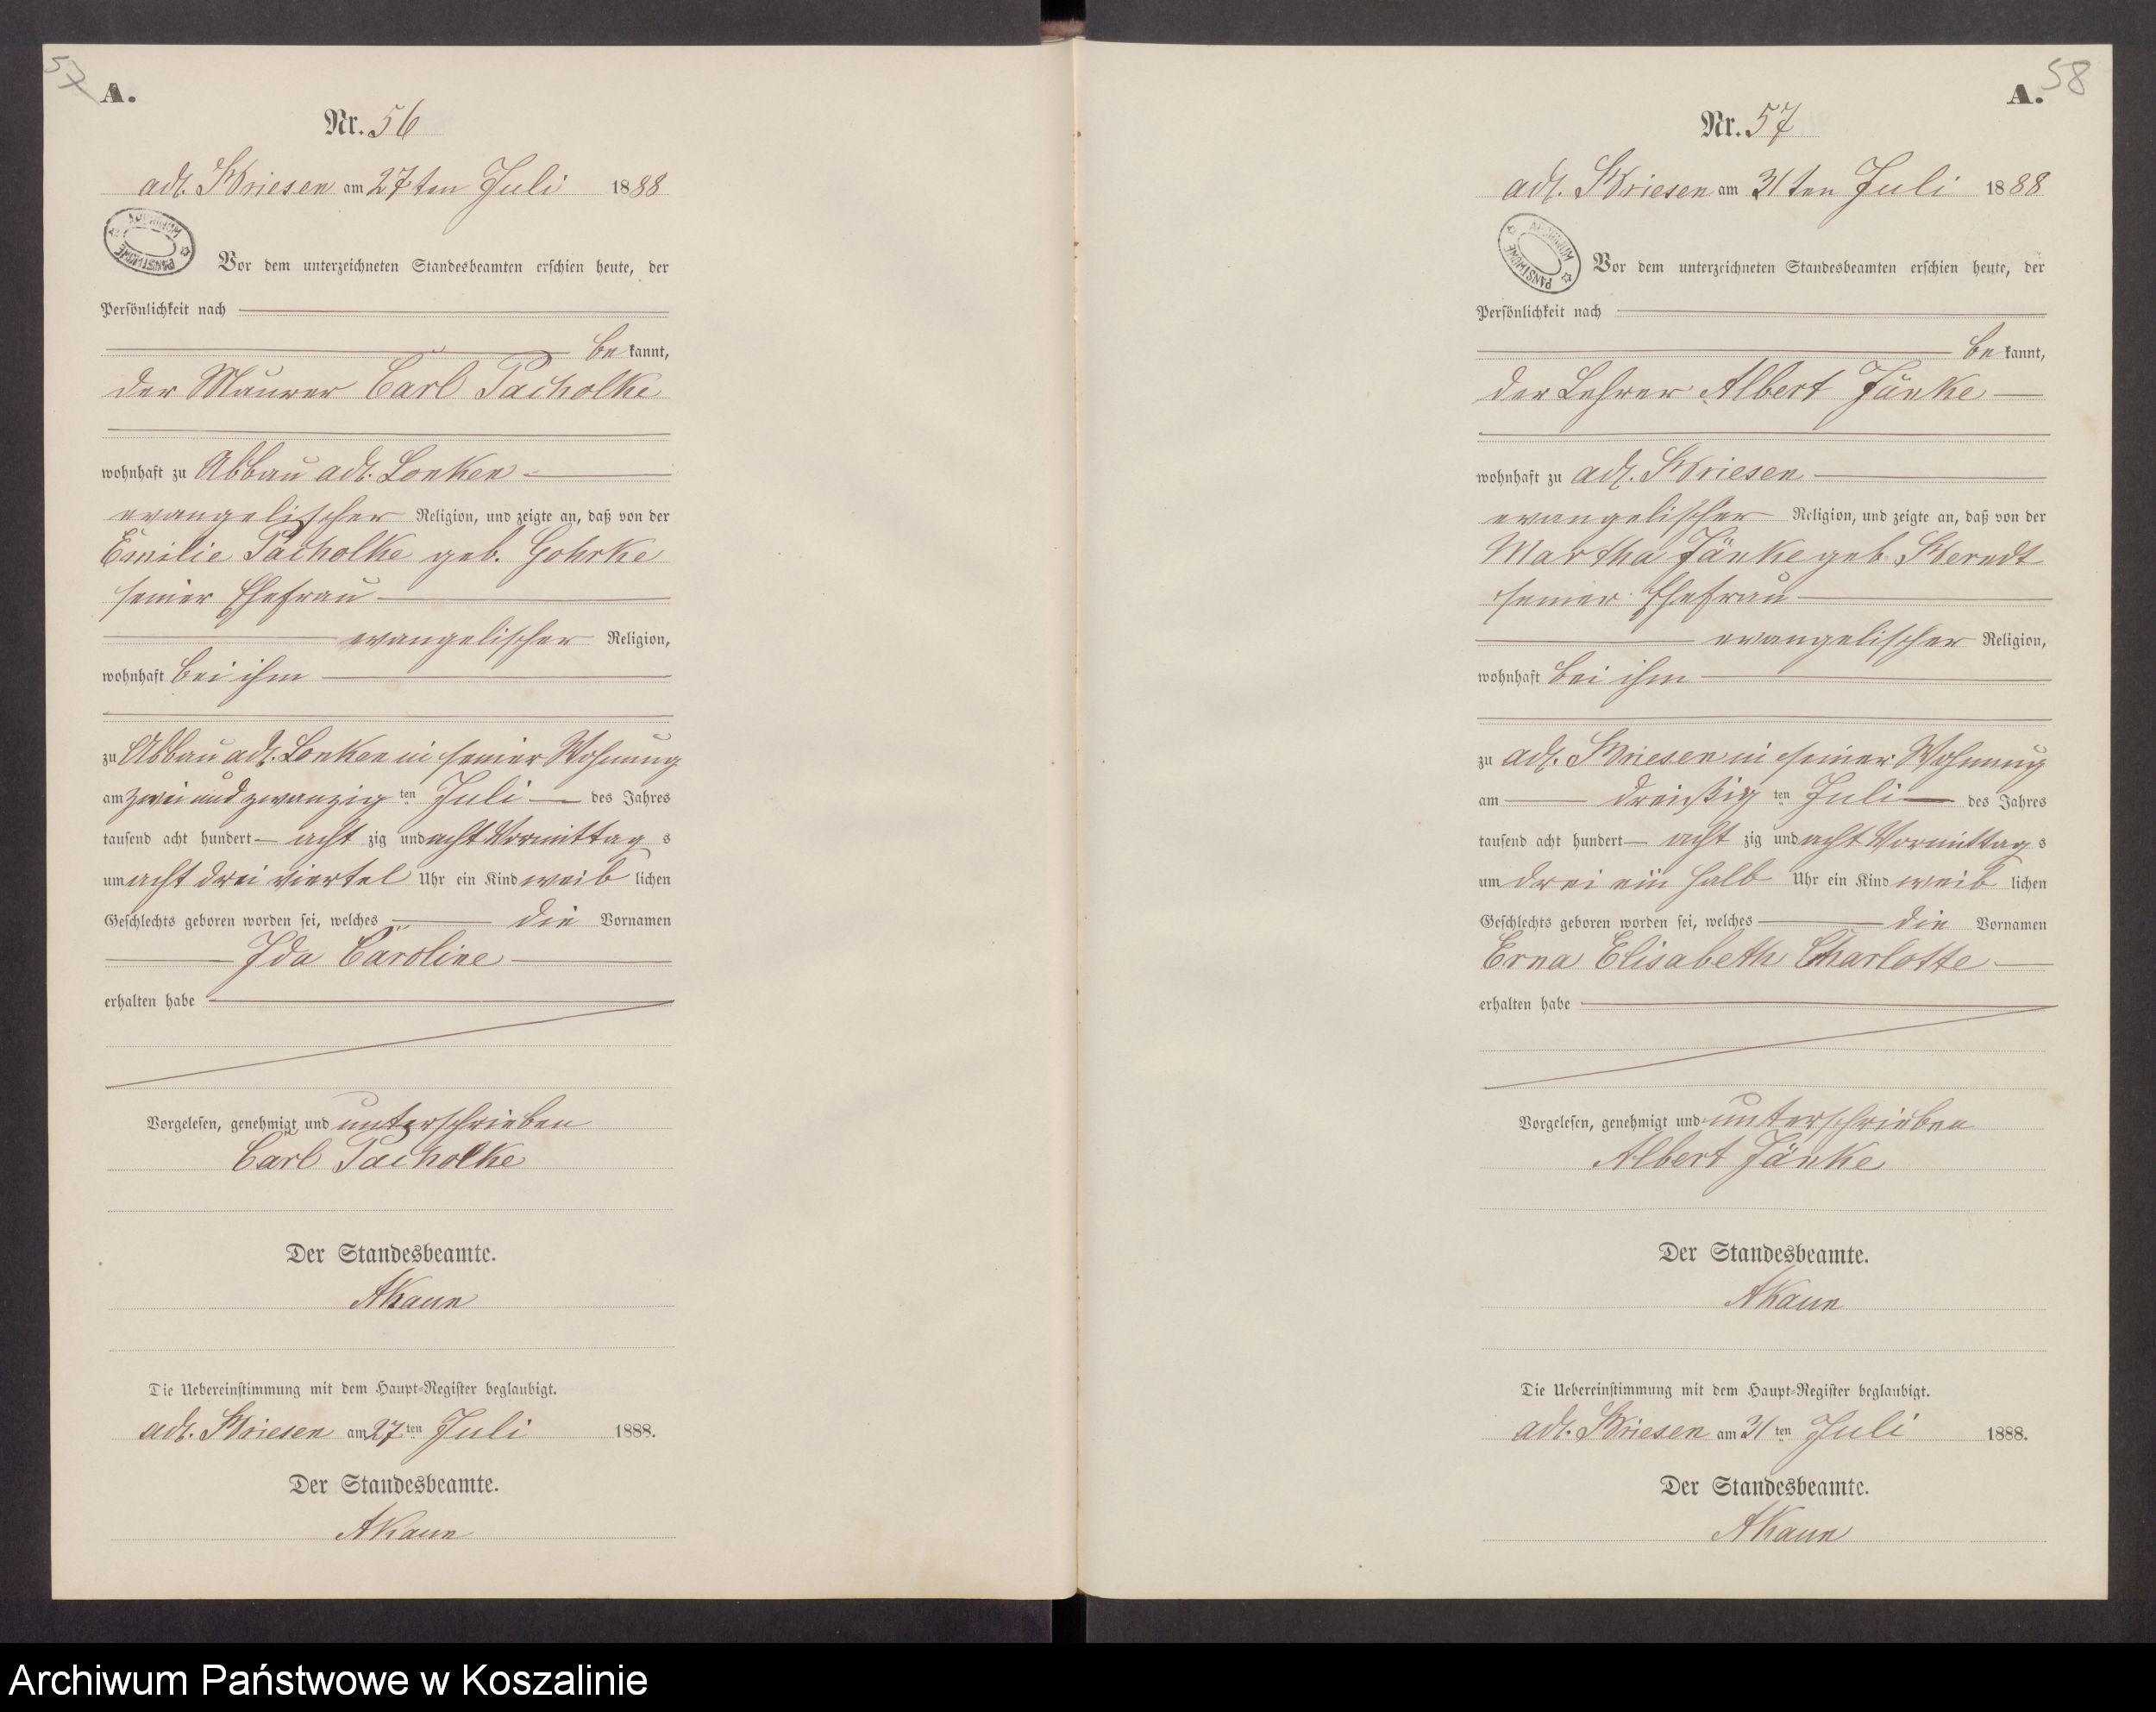 57
A.
Nr. 56
adl. Briesen am 27ten Juli 1888
ARCHIWUM PAŃSTWOWE
Vor dem unterzeichneten Standesbeamten erschien heute, der
Persönlichkeit nach
be kannt,
der Maurer Carl Pacholke
wohnhaft zu Abbau adl. Lonken
evangelischer Religion, und zeigte an, daß von der
Emilie Pacholke geb. Gohrke
seiner Ehefrau
evangelischer Religion,
wohnhaft bei ihm
zu Abbau adl. Lonken in seiner Wohnung
am zwei und zwanzig ten Juli des Jahres
tausend acht hundert acht zig und acht Vormittag s
um acht drei viertel Uhr ein Kind weib lichen
Geschlechts geboren worden sei, welches die Vornamen
Ida Caroline
erhalten habe
Vorgelesen, genehmigt und unterschrieben
Carl Pacholke
Der Standesbeamte.
Die Uebereinstimmung mit dem Haupt-Register beglaubigt.
adl. Briesen am 27 ten Juli 1888.
Der Standesbeamte.
58
A.
Nr. 57
adl. Briesen am 31ten Juli 1888
ARCHIWUM PAŃSTWOWE
Vor dem unterzeichneten Standesbeamten erschien heute, der
Persönlichkeit nach
be kannt,
der Lehrer Albert Jänke
wohnhaft zu adl. Briesen
evangelischer Religion, und zeigte an, daß von der
Martha Jänke geb. Berndt
seiner Ehefrau
evangelischer Religion,
wohnhaft bei ihm
zu adl. Briesen in seiner Wohnung
am dreißig ten Juli des Jahres
tausend acht hundert acht zig und acht Vormittag s
um drei ein halb Uhr ein Kind weib lichen
Geschlechts geboren worden sei, welches die Vornamen
Erna Elisabeth Charlotte
erhalten habe
Vorgelesen, genehmigt und unterschrieben
Albert Jänke
Der Standesbeamte.
Die Uebereinstimmung mit dem Haupt-Register beglaubigt.
adl. Briesen am 31 ten Juli 1888.
Der Standesbeamte.
Archiwum Państwowe w Koszalinie